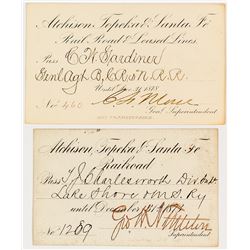 Atchison, Topeka & Santa Fe
Rail Road & Leased Lines
Pass C. W. Gardiner
Genl Agt. B, C R & N. R. R.
Until Dec 31 1878
No 460
Genl Superintendent
NOT TRANSFERABLE
Atchison, Topeka & Santa Fe
Railroad.
Pass J J Charlesworth Div
Lake Shore & M S. Ry
until December
No 1209
Superintendent